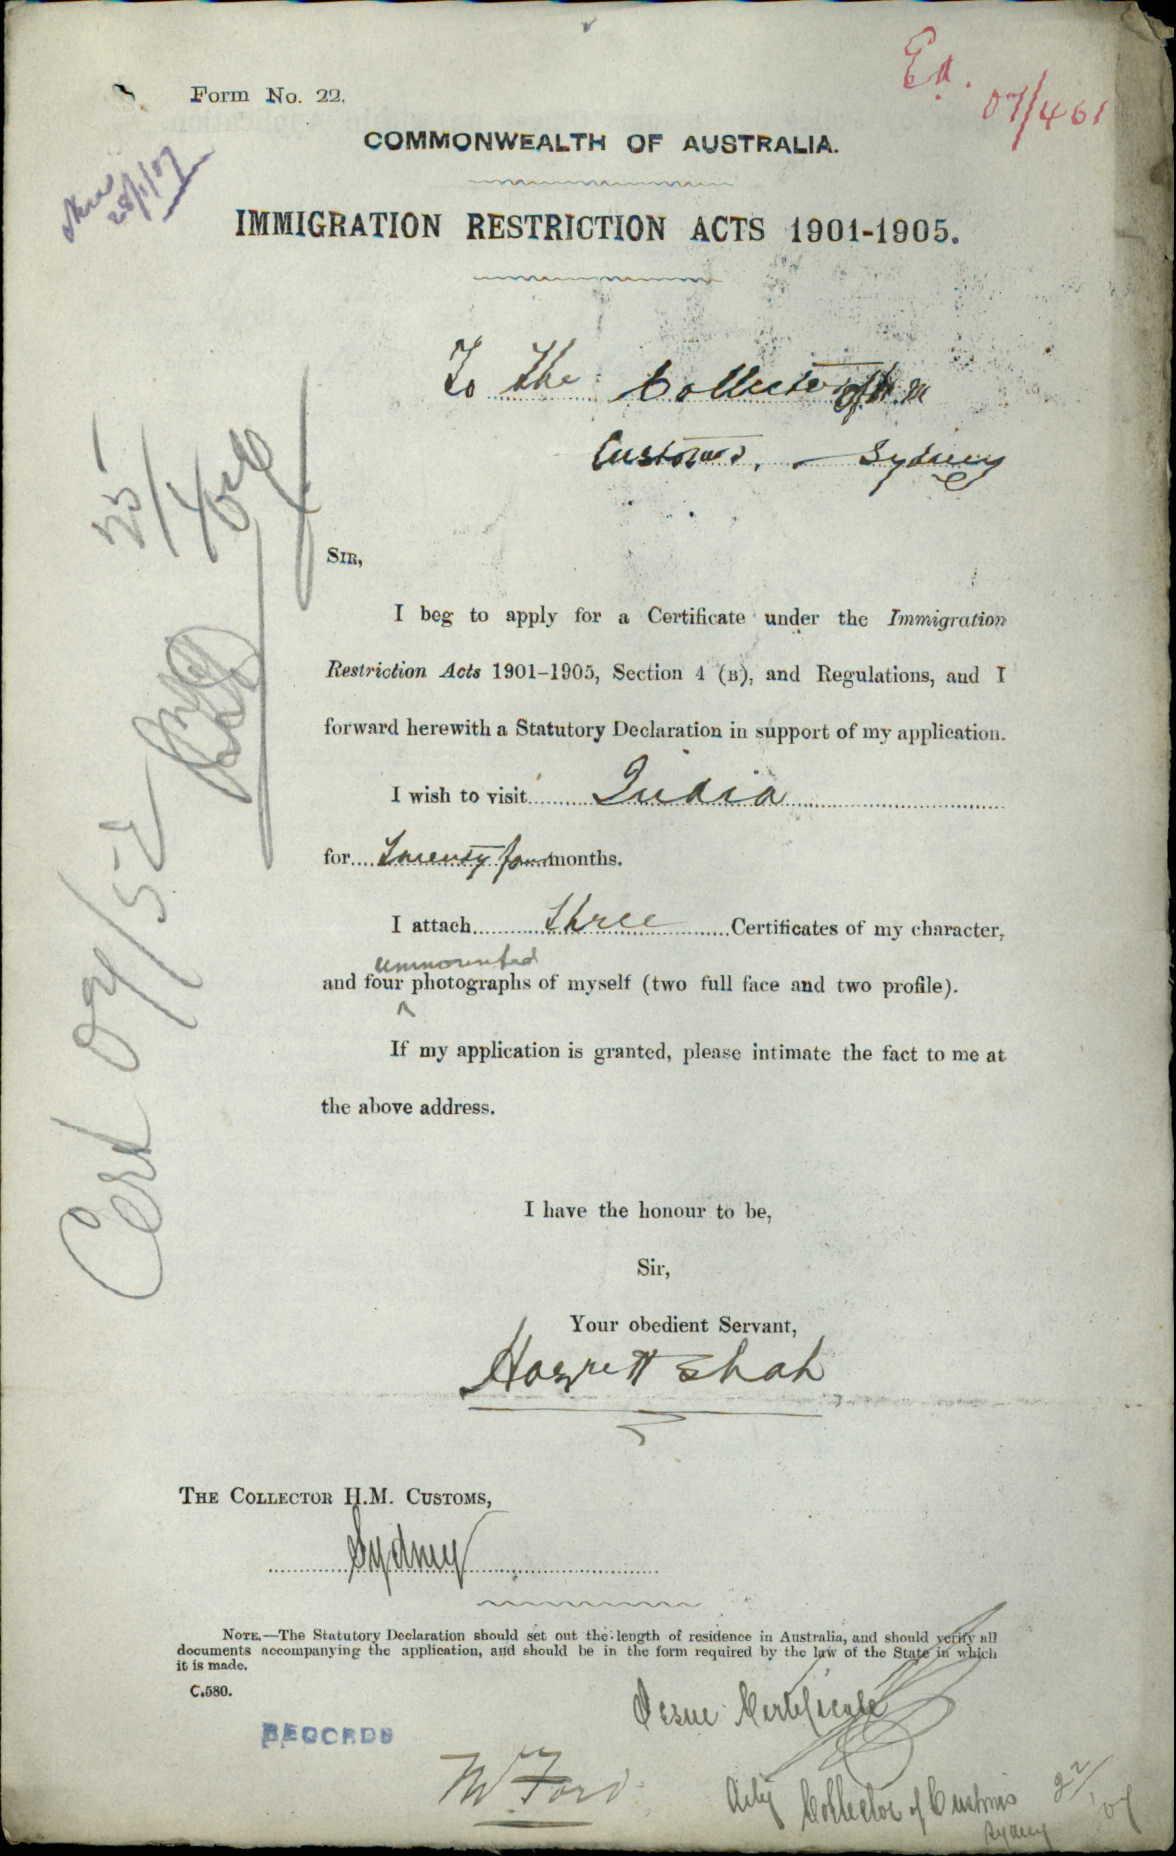 Form No. 22.
Ed.
07/461
COMMONWEALTH OF AUSTRALIA.
28/1/07
IMMIGRATION RESTRICTION ACTS 1901-1905.
To the Collector of H.M
Customs, Sydney
SIR,
I beg to apply for a Certificate under the Immigration
Restriction Acts 1901-1905, Section 4 (B), and Regulations, and I
forward herewith a Statutory Declaration in support of my application.
I wish to visit India
for Twenty four months.
I attach three Certificates of my character,
unmounted
and four photographs of myself (two full face and two profile).
^
If my application is granted, please intimate the fact to me at
the above address.
Cert 07/52
I have the honour to be,
Sir,
Your obedient Servant,
Hazrett Shah
THE COLLECTOR H.M. CUSTOMS,
Sydney
NOTE.—The Statutory Declaration should set out the length of residence in Australia, and should verify all
documents accompanying the application, and should be in the form required by the law of the State in which
it is made.
C.580.
Issue Certificate
RECORDS
Mr Ford
Actg Collector of Customs
Sydney